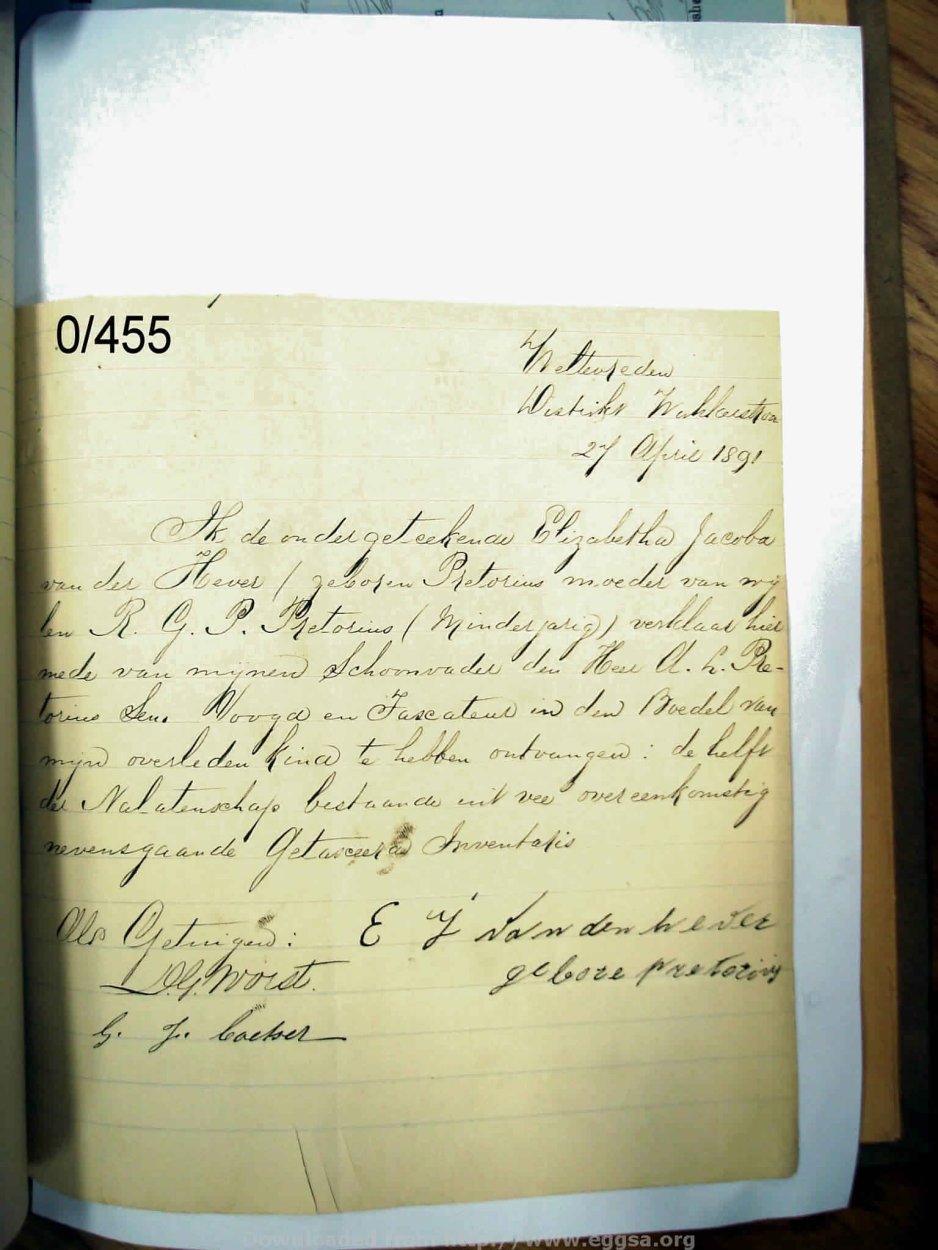 0/455
Weltevreden
Distrikt Wakkerstroom
27 April 1891
Ik de ondergeteekende Elizabetha Jacoba
van der Hever / geboren Pretorius moeder van wij
len R. G. P. Pretorius (Minderjarig) verklaar hier
mede van mijnen Schoonvader den Heer A. L. Pre-
torius Sen. Voogd en Taxateur in den Boedel van
mijn overleden kind te hebben ontvangen: de helft
der Nalatenschap bestaande uit vee overeenkomstig
nevensgaande Getaxeerd Inventaris
Als Getuigen: E J van den hever
gebore pretorius
D.G. Vorst.
G. J. Coetser
Downloaded from http://www.eggsa.org